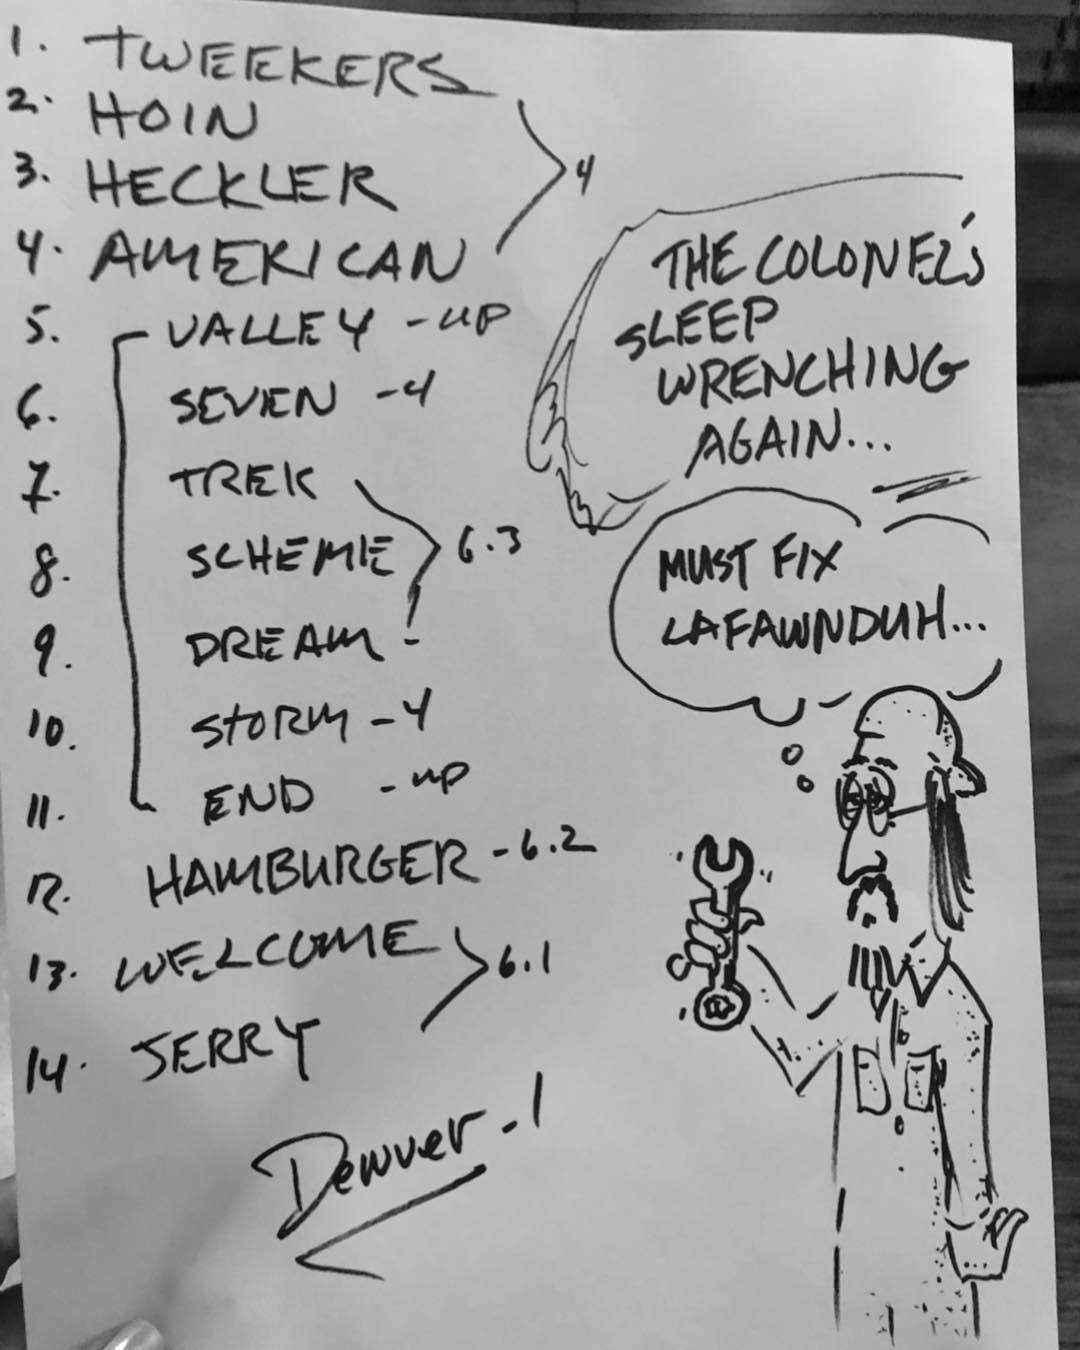 1. TWEEKERS
2. HOIN
3. HECKLER
4. AMERICAN
4
5. VALLEY - UP
6. SEVEN - 4
7. TREK
8. SCHEME
9. DREAM
6.3
10. STORM - 4
11. END - UP
12. HAMBURGER - 6.2
13. WELCOME
14. JERRY
6.1
Denver - 1
THE COLONEL'S
SLEEP
WRENCHING
AGAIN...
MUST FIX
LAFAWNDUH...